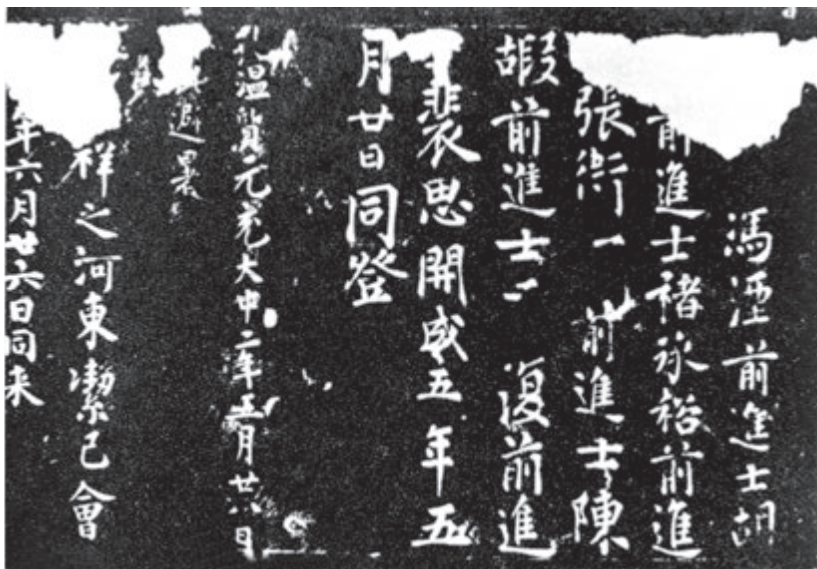 馮涯前進士胡
前進士褚承裕前進
張前進士陳
嘏前進士復前進
裴思開成五年五
月廿日同登
温大中二年五月廿八日
祥之河東潔己會
年六月廿六日同来